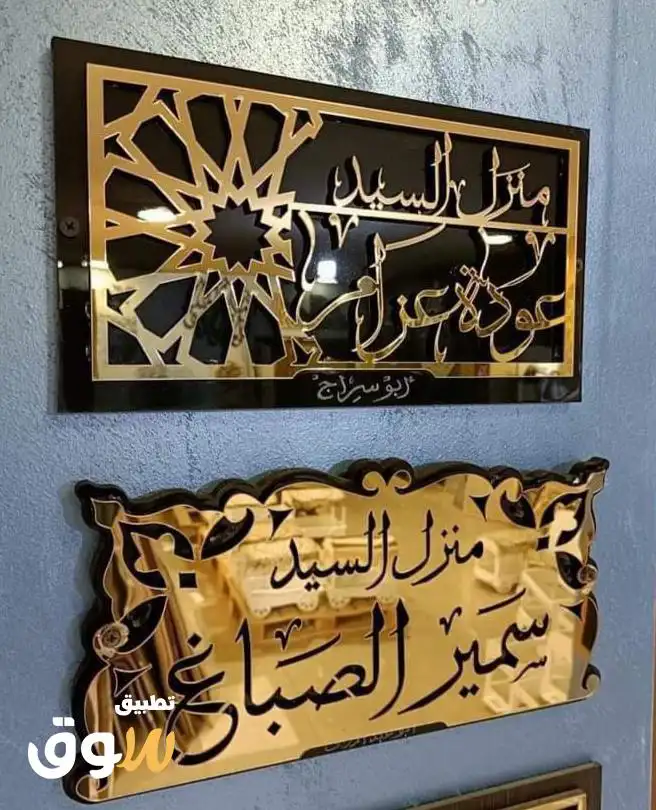 منزل السيد
عودة عزام
"ابو سراج"
منزل السيد
سمير الصباغ
تطبيق
سوق